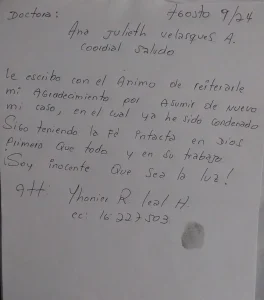 Agosto 9/24
Doctora:
Ana Julieth Velasques A.
Cordial Saludo
Le escribo con el Animo de reiterarle
mi Agradecimiento por Asumir de Nuevo
mi caso, en el cual ya he sido Condenado
Sigo teniendo la Fé intacta en Dios
Primero que todo y en su trabajo
¡Soy inocente Que sea la luz!
Att Yhonier R leal H.
cc 16227503